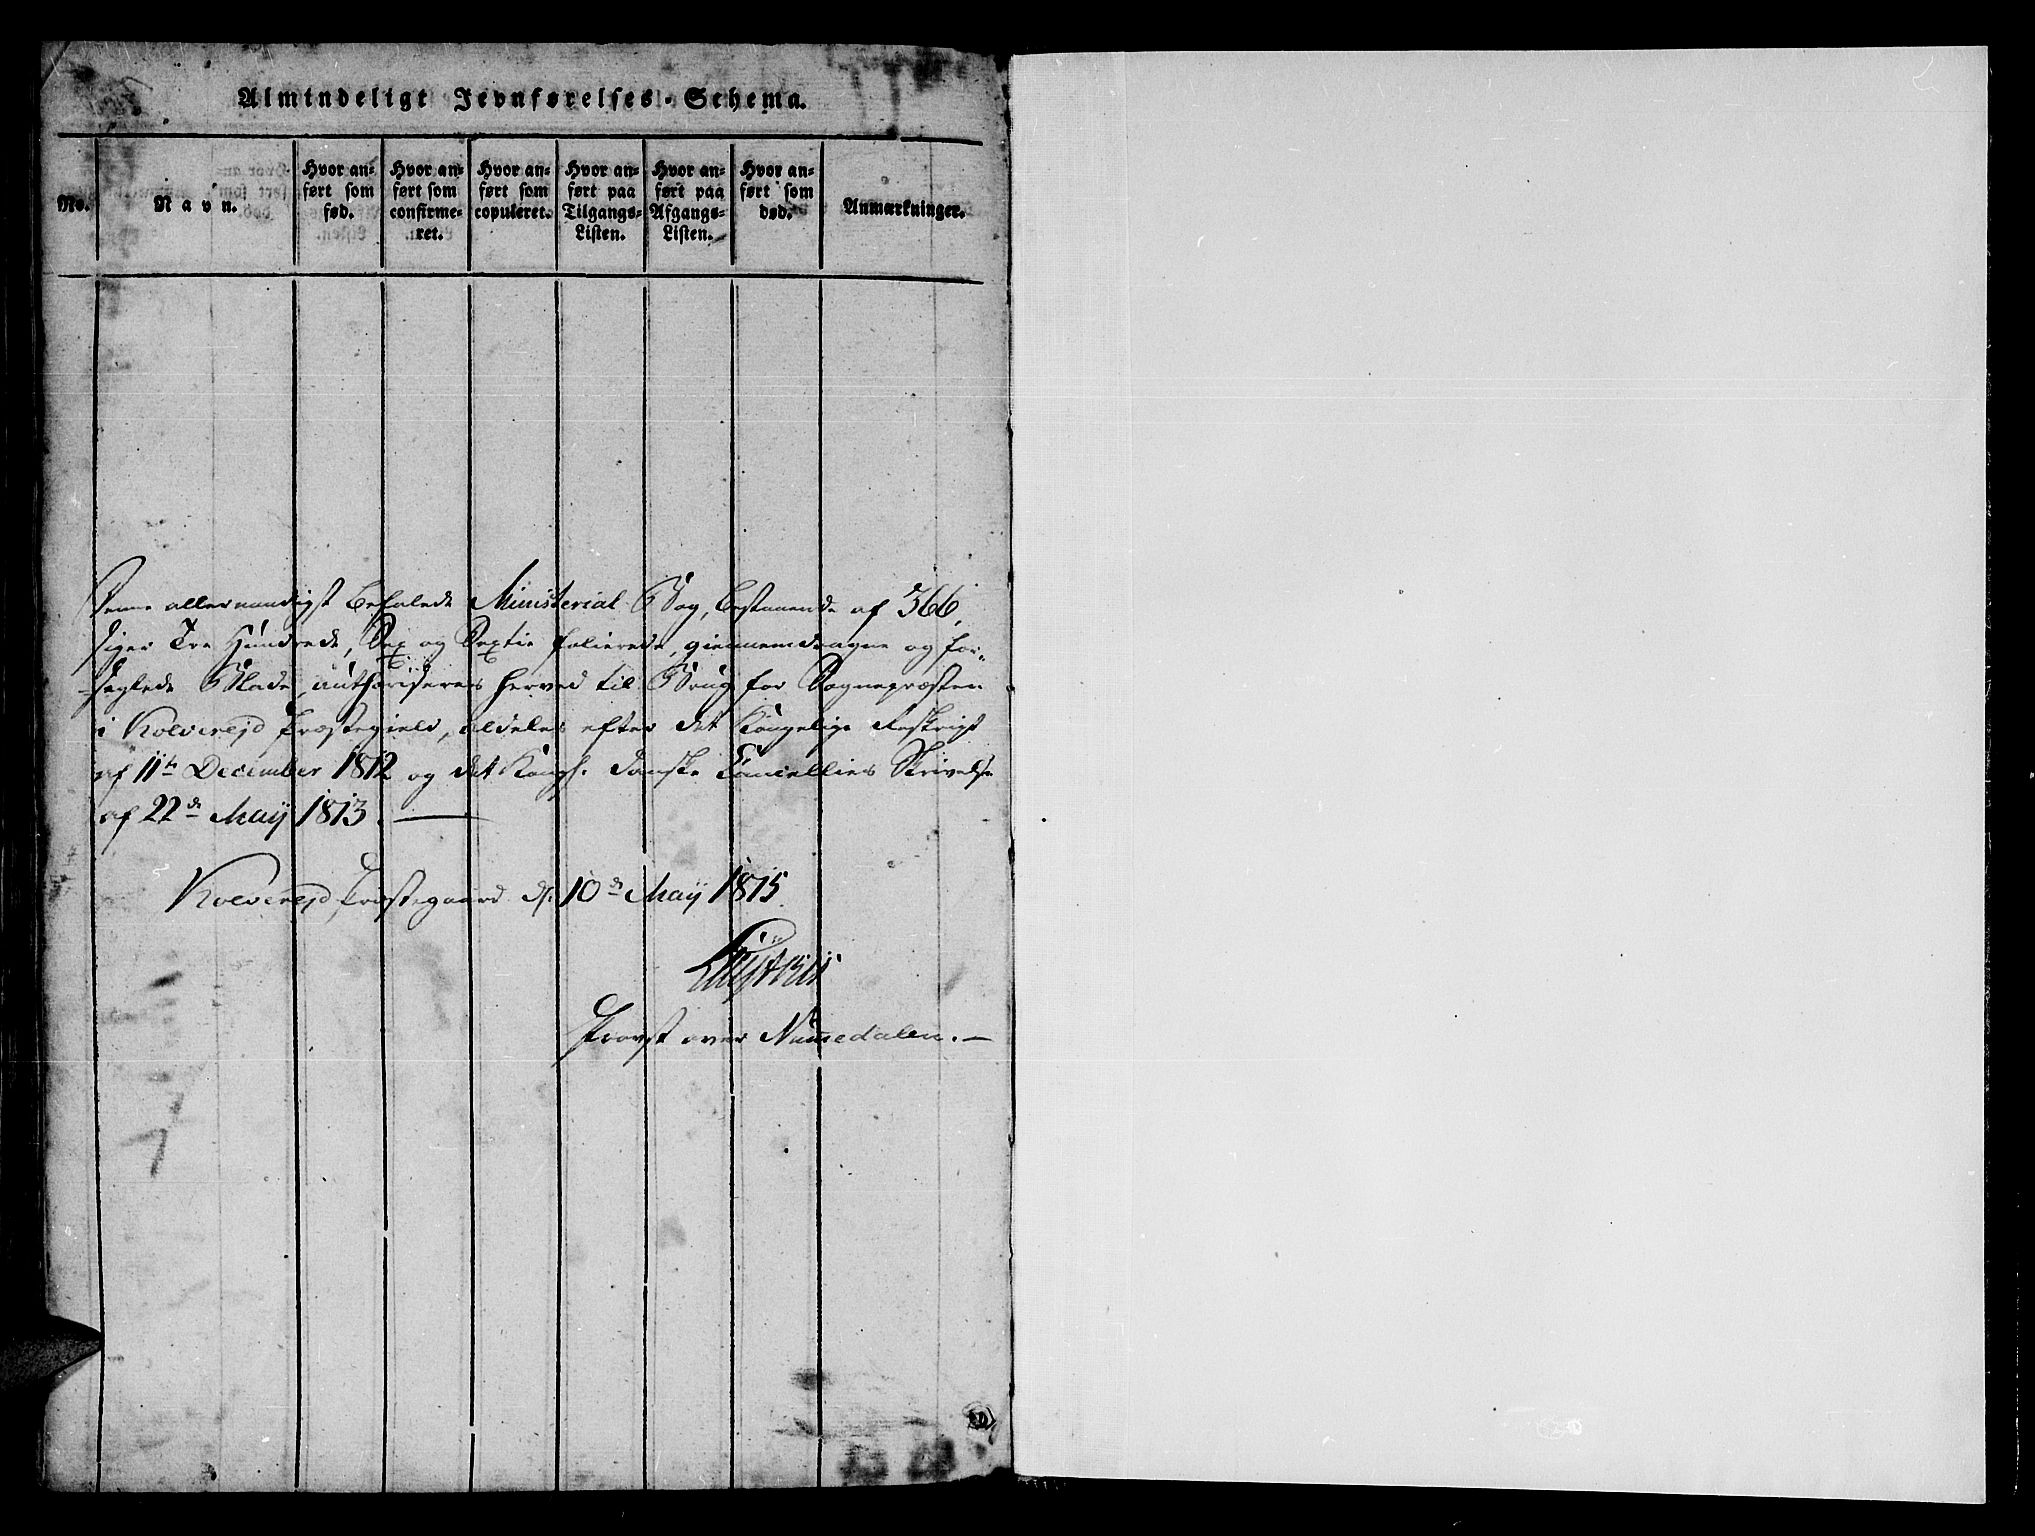 Almindeligt Jevnførelses-Schema.
No.
Navn.
Hvor an-
ført som
fød.
Hvor an-
ført som
confirme-
ret.
Hvor an-
ført som
copuleret.
Hvor an-
ført paa
Tilgangs-
Listen.
Hvor an-
ført paa
Afgangs-
Listen.
Hvor an-
ført som
død.
Anmærkninger.
Denne allernaadigst befalede Ministerial Bog, bestaaende af 366,
siger Tre Hundrede, Sex og Sextie folierede, giennemdragne og for-
seglede Blade, authoriseres herved til Brug for Sognepræsten
i Kolverejd Præstegield, aldeles efter det Kongelige Reskript
af 11te December 1812 og det Kongl. Danske Cancellies Skrivelse
af 22de Maij 1813.
Kolverejd Præstegaard d. 10de Maij 1815.
Provst over Numedalen.